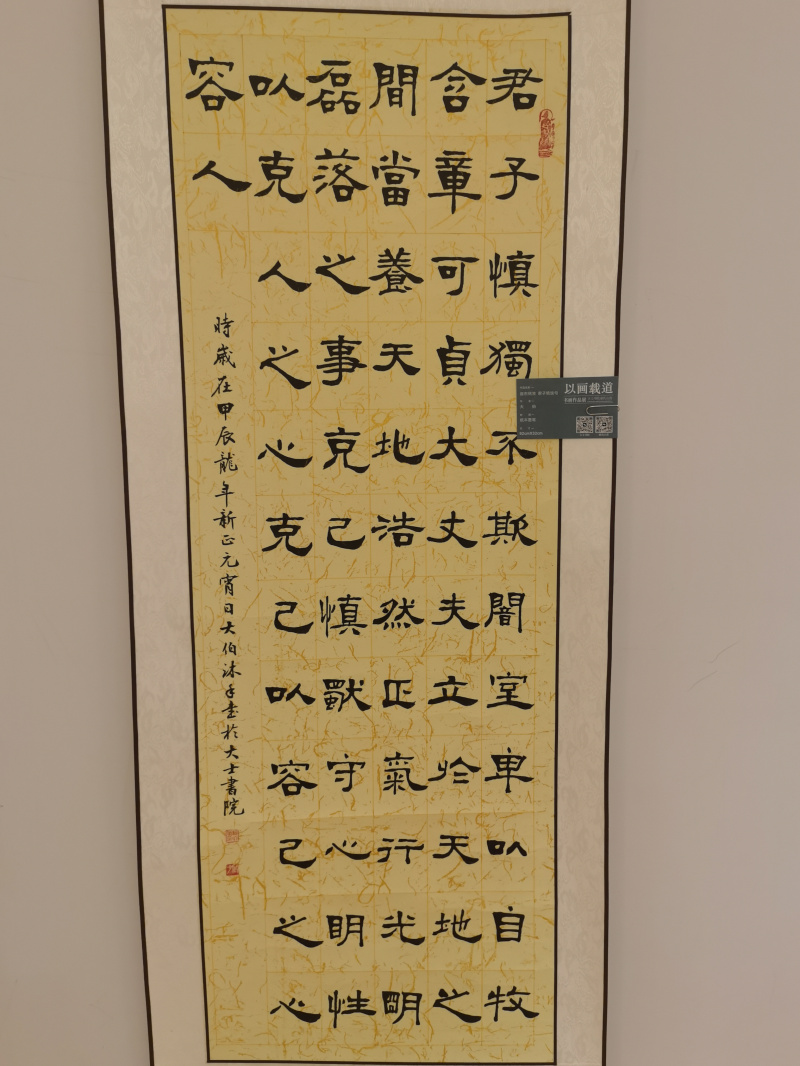 君子慎獨不欺闇室卑以自牧
含章可貞大丈夫立於天地之
間當養天地浩然正氣行光明
磊落之事克己慎獨守心明性
以克人之心克己以容己之心
容人
時歲在甲辰龍年新正元宵日大伯沐手書於大士書院
以画载道